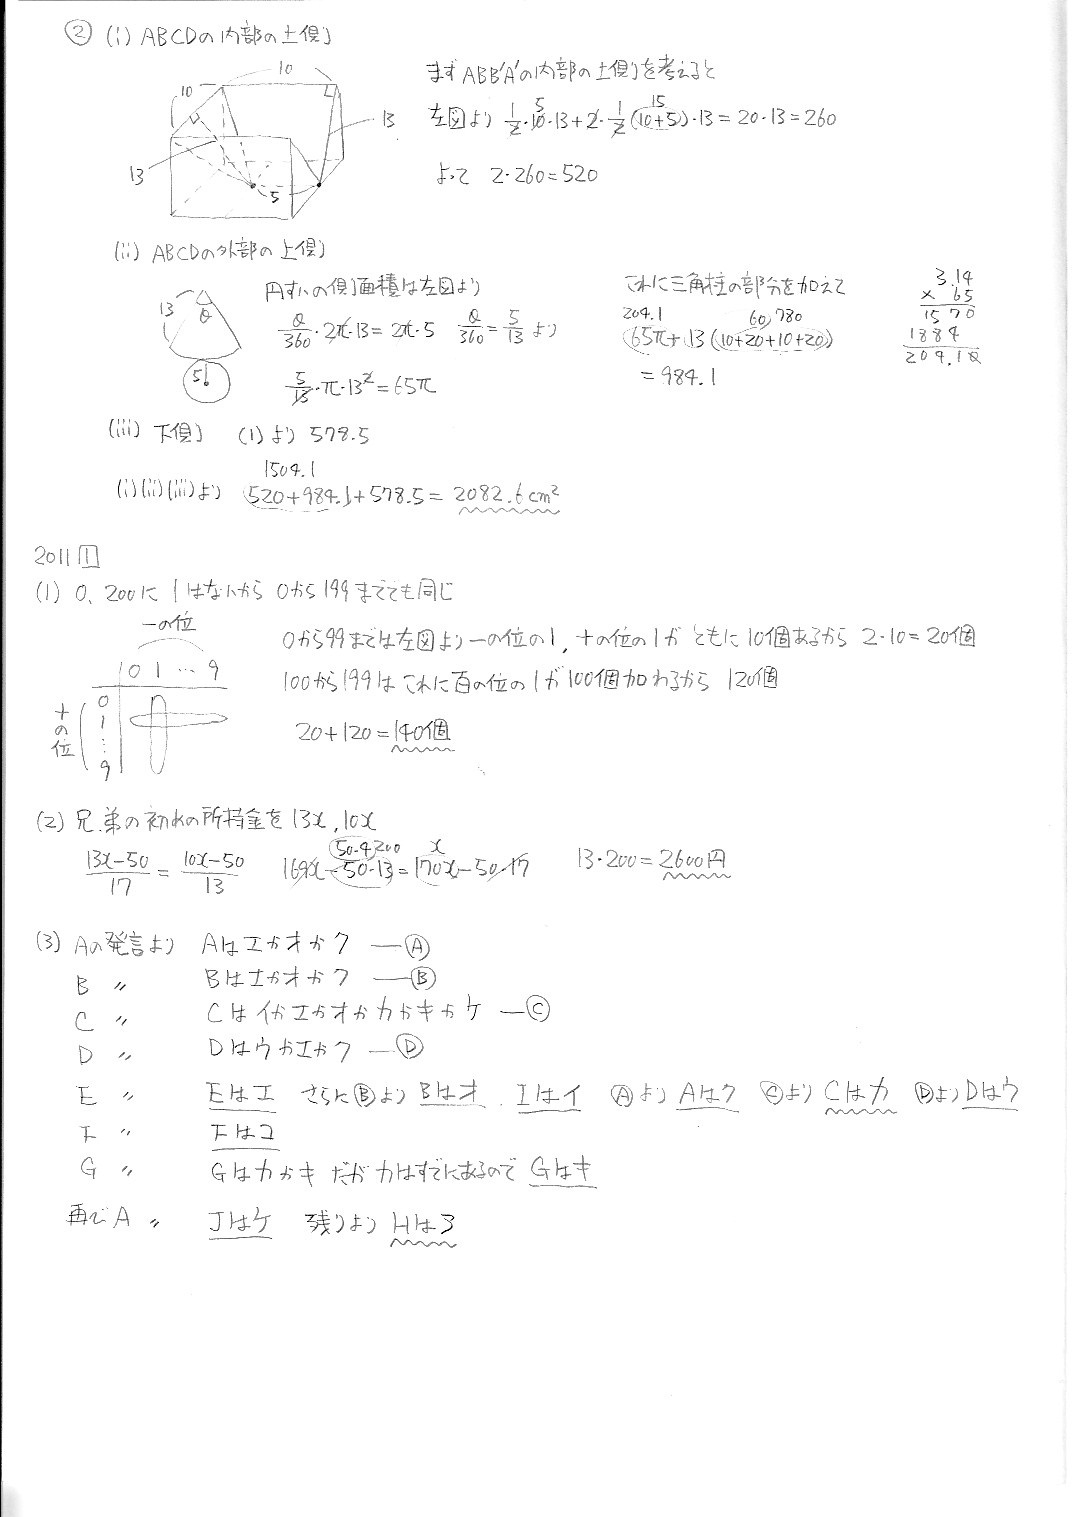 ② (i) ABCDの内部の上側
10
10
13
13
5
まずABB'A'の内部の上側を考えると
左図より 1/2・10・13+2・1/2(10+5)・13=20・13=260
5 15
よって 2・260=520
(ii) ABCDの外部の上側
13 θ
5
円すいの側面積は左図より
θ/360・2π・13=2π・5 θ/360=5/13 より
5/13・π・13²=65π
これに三角柱の部分を加えて
204.1 60, 780
65π+13(10+20+10+20)
=984.1
3.14
× 65
1570
1884
204.10
(iii) 下側 (1)より 578.5
1504.1
(i)(ii)(iii)より 520+984.1+578.5=2082.6cm²
2011 1
(1) 0、200に1はないから 0から199まででも同じ
一の位
0 1 … 9
十の位
0
1
⋮
9
0から99までは左図より一の位の1,十の位の1がともに10個あるから 2・10=20個
100から199はこれに百の位の1が100個加わるから 120個
20+120=140個
(2) 兄,弟の初めの所持金を13x,10x
13x-50/17=10x-50/13
50・4,200 x
169x-50・13=170x-50・17
13・200=2600円
(3) Aの発言より Aはエかオかク —Ⓐ
B 〃 Bはエかオかク —Ⓑ
C 〃 Cはイかエかオかカかキかケ —Ⓒ
D 〃 Dはウかエかク —Ⓓ
E 〃 Eはエ さらにⒷより Bはオ. Iはイ Ⓐより Aはク Ⓒより Cはカ Ⓓより Dはウ
F 〃 Fはコ
G 〃 Gはカかキ だがカはすでにあるので Gはキ
再びA 〃 Jはケ 残りより Hはア